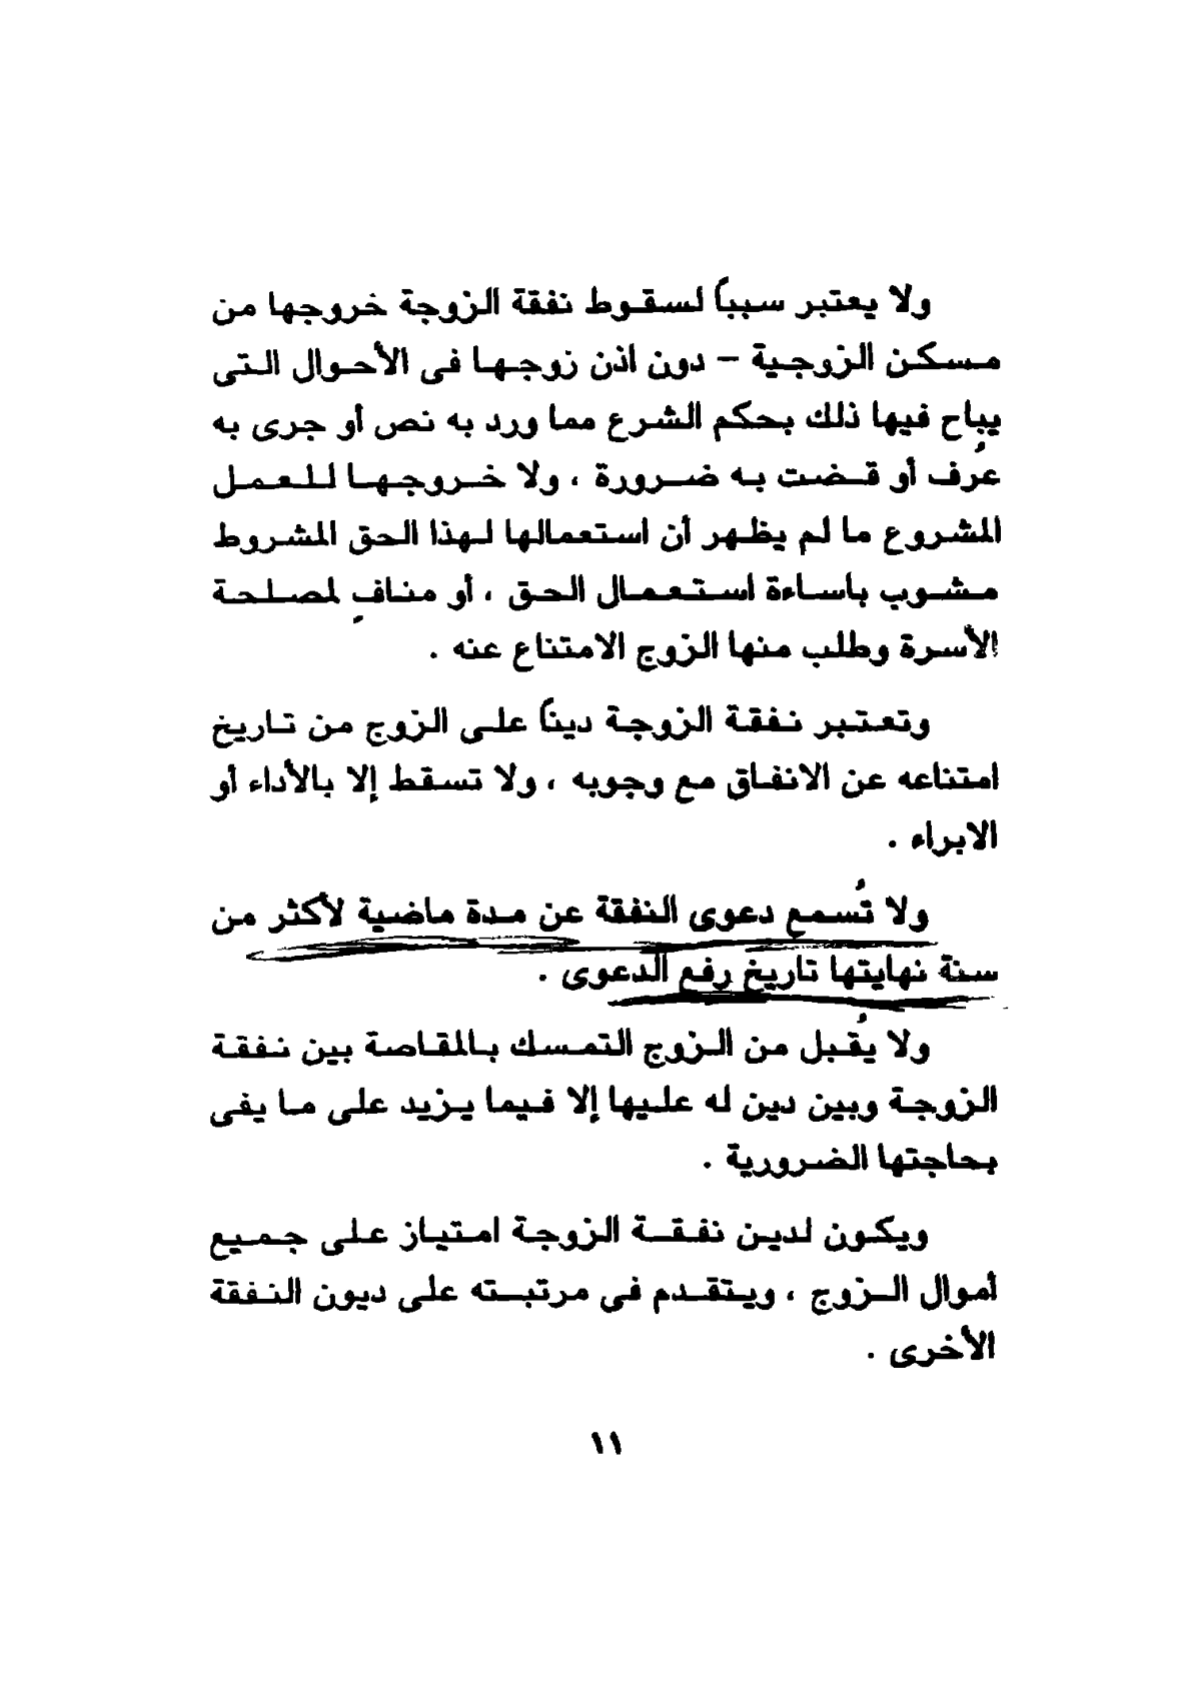 ولا يعتبر سبباً لسقوط نفقة الزوجة خروجها من
مسكن الزوجية – دون اذن زوجها فى الأحوال التى
يباح فيها ذلك بحكم الشرع مما ورد به نص أو جرى به
عُرف أو قضت به ضرورة ، ولا خروجها للعمل
المشروع ما لم يظهر أن استعمالها لهذا الحق المشروط
مشوب باساءة استعمال الحق ، أو منافٍ لمصلحة
الأسرة وطلب منها الزوج الامتناع عنه .
وتعتبر نفقة الزوجة ديناً على الزوج من تاريخ
امتناعه عن الانفاق مع وجوبه ، ولا تسقط إلا بالأداء أو
الابراء .
ولا تُسمع دعوى النفقة عن مدة ماضية لأكثر من
سنة نهايتها تاريخ رفع الدعوى .
ولا يُقبل من الزوج التمسك بالمقاصة بين نفقة
الزوجة وبين دين له عليها إلا فيما يزيد على ما يفى
بحاجتها الضرورية .
ويكون لدين نفقة الزوجة امتياز على جميع
أموال الزوج ، ويتقدم فى مرتبته على ديون النفقة
الأخرى .
١١